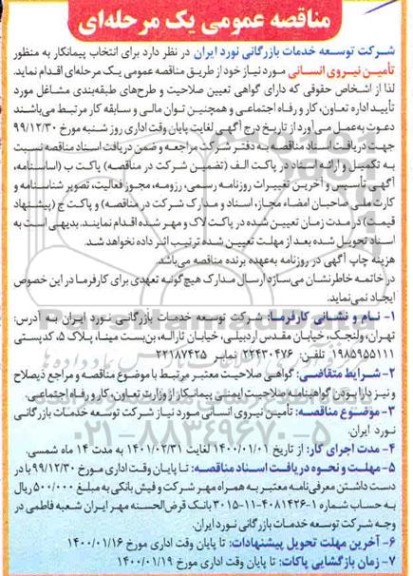 مناقصه عمومی یک مرحله‌ای
شرکت توسعه خدمات بازرگانی نورد ایران در نظر دارد برای انتخاب پیمانکار به منظور
تأمین نیروی انسانی مورد نیاز خود از طریق مناقصه عمومی یک مرحله‌ای اقدام نماید.
لذا از اشخاص حقوقی که دارای گواهی تعیین صلاحیت و طرح‌های طبقه‌بندی مشاغل مورد
تأیید اداره تعاون، کار و رفاه اجتماعی و همچنین توان مالی و سابقه کار مرتبط می‌باشند
دعوت به‌عمل می‌آورد از تاریخ درج آگهی لغایت پایان وقت اداری روز شنبه مورخ ۹۹/۱۲/۳۰
جهت دریافت اسناد مناقصه به دفتر شرکت مراجعه و ضمن دریافت اسناد مناقصه نسبت
به تکمیل و ارائه اسناد در پاکت الف (تضمین شرکت در مناقصه) پاکت ب (اساسنامه،
آگهی تأسیس و آخرین تغییرات روزنامه رسمی، رزومه، مجوز فعالیت، تصویر شناسنامه و
کارت ملی صاحبان امضاء مجاز، اسناد و مدارک شرکت در مناقصه) و پاکت ج (پیشنهاد
قیمت) در مدت زمان تعیین شده در پاکت لاک و مهر شده اقدام نمایند. بدیهی است به
اسناد تحویل شده بعد از مهلت تعیین شده ترتیب اثر داده نخواهد شد.
هزینه چاپ آگهی در روزنامه به‌عهده برنده مناقصه می‌باشد
در خاتمه خاطرنشان می‌سازد ارسال مدارک هیچ‌گونه تعهدی برای کارفرما در این خصوص
ایجاد نمی‌نماید.
۱- نام و نشانی کارفرما: شرکت توسعه خدمات بازرگانی نورد ایران به آدرس:
تهران، ولنجک، خیابان مقدس اردبیلی، خیابان تاراله، بن‌بست مینا، پلاک ۵، کدپستی
۱۹۸۵۹۵۵۱۱۱ تلفن: ۲۲۴۳۰۴۷۶ نمابر ۲۲۱۸۷۴۲۵
۲- شرایط متقاضی: گواهی صلاحیت معتبر مرتبط با موضوع مناقصه و مراجع ذیصلاح
و نیز دارا بودن گواهینامه صلاحیت ایمنی پیمانکار از وزارت تعاون، کار و رفاه اجتماعی.
۳- موضوع مناقصه: تأمین نیروی انسانی مورد نیاز شرکت توسعه خدمات بازرگانی
نورد ایران.
۴- مدت اجرای کار: از تاریخ ۱۴۰۰/۰۱/۰۱ لغایت ۱۴۰۱/۰۲/۳۱ به مدت ۱۴ ماه شمسی.
۵- مهلت و نحوه دریافت اسناد مناقصه: تا پایان وقت اداری مورخ ۹۹/۱۲/۳۰ با در
دست داشتن معرفی‌نامه معتبر به همراه مهر شرکت و فیش بانکی به مبلغ ۵۰۰/۰۰۰ ریال
به حساب شماره ۱-۴۰۸۱۴۲۶-۱۱-۳۰۱۵ بانک قرض‌الحسنه مهر ایران شعبه فاطمی در
وجه شرکت توسعه خدمات بازرگانی نورد ایران.
۶- آخرین مهلت تحویل پیشنهادات: تا پایان وقت اداری مورخ ۱۴۰۰/۰۱/۱۶
۷- زمان بازگشایی پاکات: تا پایان وقت اداری مورخ ۱۴۰۰/۰۱/۱۹
۰۲۱-۸۸۳۴۹۶۷۰-۵